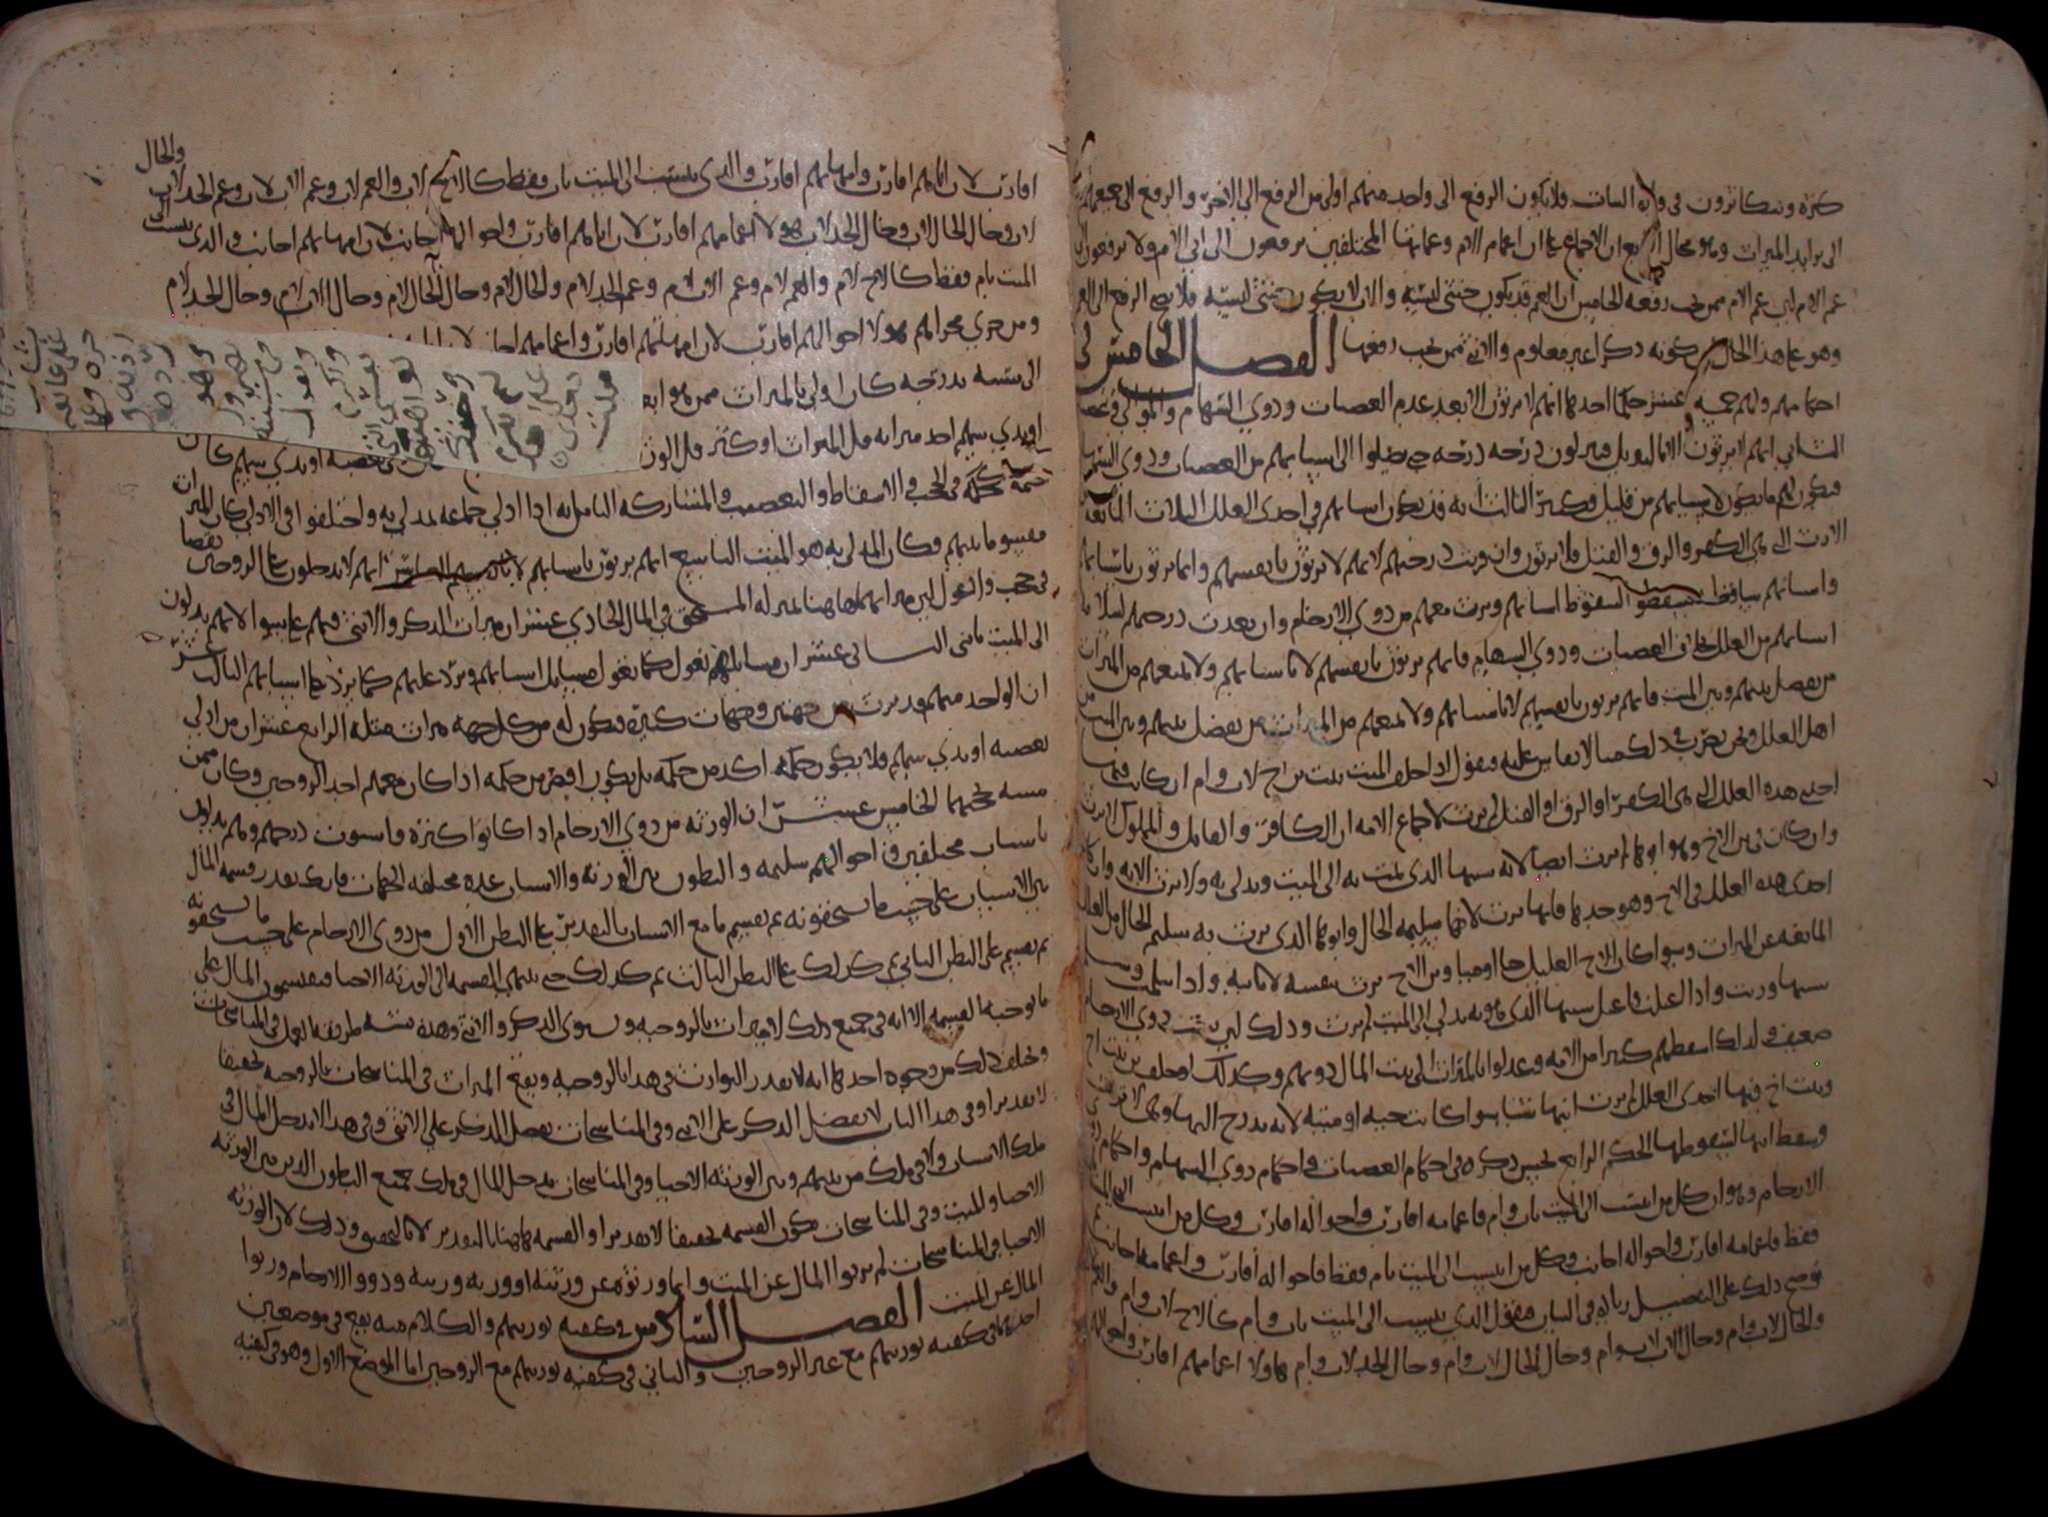 كثره ويتكاثرون في ولاه البنات فلا يكون الرفع الى واحد منهم اولى من الرفع الى الاخر والرفع الى جميعهم
الى يزايد الميراث وهو محال الرابع ان الاجماع على ان اعمام الام وعماتها المختلفين يرفعون الى ابي الام ولا يرفعون الى
عم الام لان عم الام ممن يجب رفعه الخامس ان العم قد يكون خنثى لبسه والاب لا يكون خنثى لبسه فلا يصح الرفع الى العم
وهو على هذا الحال كونه ذكرا غير معلوم والانثى ممن يجب رفعها الفصل الخامس في
احكامهم ولهم خمسه عشر حكما احدها انهم لا يرثون الا بعد عدم العصبات وذوي السهام والموالي
الثاني انهم لا يرثون الا بالتنزيل فينزلون درجه درجه حتى يصلوا الى اسبابهم من العصبات وذوي السهام
فيكون لهم ما يكون لاسبابهم من قليل وكثير الثالث انه قد يكون اسبابهم في احدى العلل الثلاث المانعه
الارث التي هي الكفر والرق والقتل فلا يرثون وان قربت درجتهم لانهم لا يرثون بانفسهم وانما يرثون باسبابهم
واسبابهم ساقطه السقوط اسبابهم ويرث معهم من ذوي الارحام وان بعدت درجتهم
اسبابهم من العلل بخلاف العصبات وذوي السهام فانهم يرثون بانفسهم لا باسبابهم ولا يمنعهم من الميراث
من يفصل بينهم وبين الميت فانهم يرثون بانفسهم لا باسبابهم ولا يمنعهم من الميراث من يفصل بينهم وبين الميت من
اهل العلل ونحن نضرب في ذلك مثالا يقاس عليه فنقول اذا خلف الميت بنت بن اخ لاب وام ان كان فيها
احدى هذه العلل التي هي الكفر او الرق او القتل لم يرث لاجماع الامه ان الكافر والقاتل والمملوك لا يرث
وان كان في بن الاخ وهو ابوها لم يرث ايضا لانه سببها الذي يمت به الى الميت ويدلي به ولا يرث الا به وان كان
احدى هذه العلل في الاخ وهو جدها فانها يرث لانها سليمه الحال وابوها الذي يرث به سليم الحال من العلل
المانعه عن الميراث وسوا كان الاخ العليل حيا او ميتا وبن الاخ يرث بنفسه لا بابيه واذا سلمت وسلم
سببها ورثت واذا اعلت او اعل سببها الذي هو به يدلي الى الميت لم يرث وذلك لان ذوي الارحام
ضعيف ولذلك اسقطهم كثير من الامه وعدلوا بالميراث الى بيت المال دونهم وكذلك لو خلف بن بنت اخ
وبنت اخ فيها احدى العلل لم يرث ابنها شيا سوا كانت حيه او ميته لانه يدرج اليها وهي لا يرث
وسقط ابنها لسقوطها الحكم الرابع يجيى ذكره في احكام العصبات واحكام ذوي السهام واحكام ذوي
الارحام وهو ان كل من انتسب الى الميت باب وام فاعمامه اقارب واخواله اقارب وكل من انتسب الى الميت
فقط فاعمامه اقارب واخواله اجانب وكل من انتسب الى الميت بام فقط فاخواله اقارب واعمامه اجانب
نوضح ذلك على التفصيل زياده في البيان فنقول الذي ينتسب الى الميت باب وام كالاخ لاب وام والعم
والخال لاب وام وخال الاب لاب وام وخال الخال لاب وام وخال الجد لاب وام هاولا اعمامهم اقارب واخوالهم
اقارب لان اباهم اقارب وامهاتهم اقارب والذي ينتسب الى الميت باب فقط كالاخ لاب والعم لاب وعم الاب لاب وعم الجد لاب والخال
لاب وخال الخال لاب وخال الجد لاب هولا اعمامهم اقارب لان اباهم اقارب واخوالهم اجانب لان امهاتهم اجانب والذي ينتسب الى
الميت بام فقط كالاخ لام والعم لام وعم الاب لام وعم الجد لام والخال لام وخال الخال لام وخال الاب لام وخال الجد لام
ومن جرى مجراهم هولا اخوالهم اقارب لان امهاتهم اقارب واعمامهم
الى سببه بدرجه كان اولى بالميراث ممن هو ابعد
او بذي سهم اخذ ميراثه قل الميراث او كثر قل الورثه
حكمه في الحجب والاسقاط والتعصيب والمشاركه الثامن انه اذا ادلى جماعه بمدلى به واختلفوا في الادلى كان الميراث
مقسوما بينهم وكان المدلى به هو الميت التاسع انهم يرثون باسبابهم لا بانفسهم العاشر انهم لا يدخلون على الزوجين نقصا
في حجب والعول ليس ميراثهما هاهنا بمنزله المستحق في المال الحادي عشر ان ميراث الذكر والانثى منهم على سوا لانهم يدلون
الى الميت بانثى الثاني عشر ان مسايلهم تعول كما تعول مسايل اسبابهم ويرد عليهم كما يرد على اسبابهم الثالث عشر
ان الواحد منهم قد يرث من جهتين وجهات كثيره فيكون له من كل جهه ميراث مثله الرابع عشر ان من ادلى
بعصبه او بذي سهم فلا يكون حكمه اكد من حكمه بل يكون انقص من حكمه اذا كان معهم احد الزوجين وكان ممن
مسه حجبهما الخامس عشر ان الورثه من ذوي الارحام اذا كانوا كثره فاستوت درجتهم وهم يدلون
باسباب مختلفين في احوالهم سليمه والبطون بين الورثه والاسباب عده مختلفه الجهات فانك تقدر قسمه المال
بين الاسباب على حسب ما يستحقونه ثم تقسم ما مع الاسباب بالتقدير على البطن الاول من ذوي الارحام على حسب ما يستحقونه
ثم تقسم على البطن الثاني ثم كذلك على البطن الثالث ثم كذلك حتى تنتهي القسمه الى الورثه الاحيا فيقتسمون المال على
ما توجبه القسمه الا انه في جميع ذلك لا ميراث بالزوجيه ويسوى الذكر والانثى وهذه تشبه طريقه العمل في المناسخات
وتخالف ذلك من وجوه احدها انه لا يقدر التوارث في هذا بالزوجيه ويقع الميراث في المناسخات بالزوجيه تحقيقا
لا تقديرا وفي هذا الباب لا يفضل الذكر على الانثى وفي المناسخات يفضل الذكر على الانثى وفي هذا لا يدخل المال في
ملك الاسباب ولا في ملك من بينهم وبين الورثه الاحيا وفي المناسخات يدخل المال في ملك جميع البطون الذين بين الورثه
الاحيا والميت وفي المناسخات تكون القسمه تحقيقا لا تقديرا والقسمه هاهنا بالتقدير لا بالتحقيق وذلك لان الورثه
الاحيا في المناسخات لم يرثوا المال عن الميت وانما ورثوه عن ورثته او ورثه ورثته وذووا الارحام ورثوا
المال عن الميت الفصل السادس في كيفيه توريثهم والكلام منه يقع في موضعين
احدهما في كيفيه توريثهم مع غير الزوجين والثاني في كيفيه توريثهم مع الزوجين اما الموضع الاول وهو في كيفيه